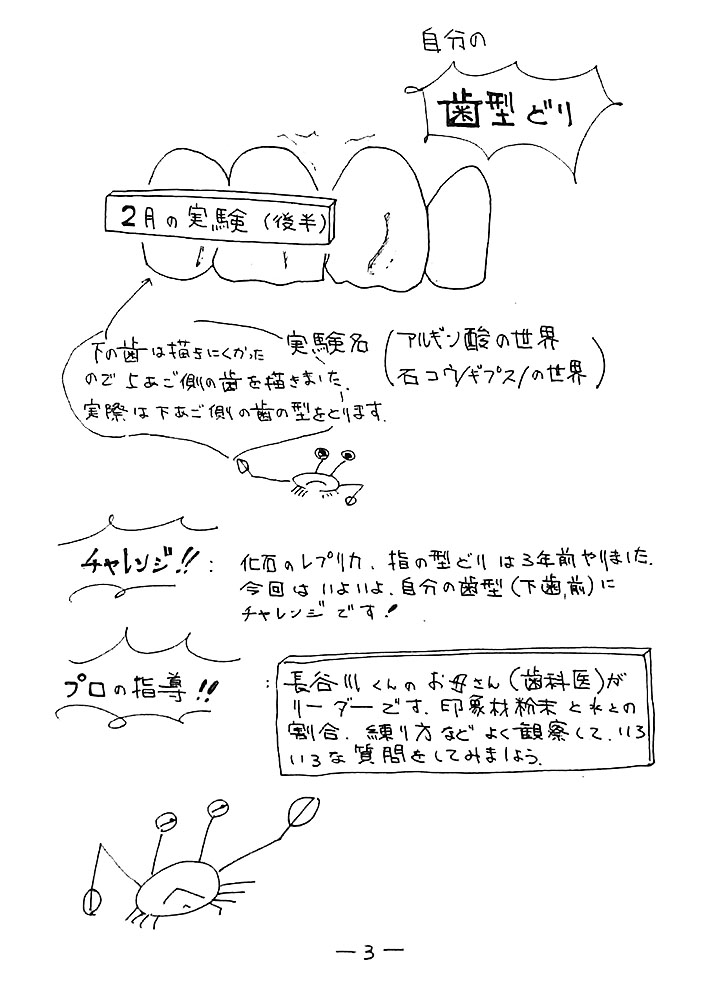 自分の
歯型どり
2月の実験（後半）
実験名（アルギン酸の世界
石コウ/ギプス/の世界）
下の歯は描きにくかった
ので上あご側の歯を描きました.
実際は下あご側の歯の型をとります.
チャレンジ!!： 化石のレプリカ、指の型どりは3年前やりました.
今回はいよいよ、自分の歯型（下歯,前）に
チャレンジです!
プロの指導!!： 長谷川くんのお母さん（歯科医）が
リーダーです. 印象材粉末と水との
割合、練り方などよく観察して、いろ
いろな質問をしてみましょう.
—3—